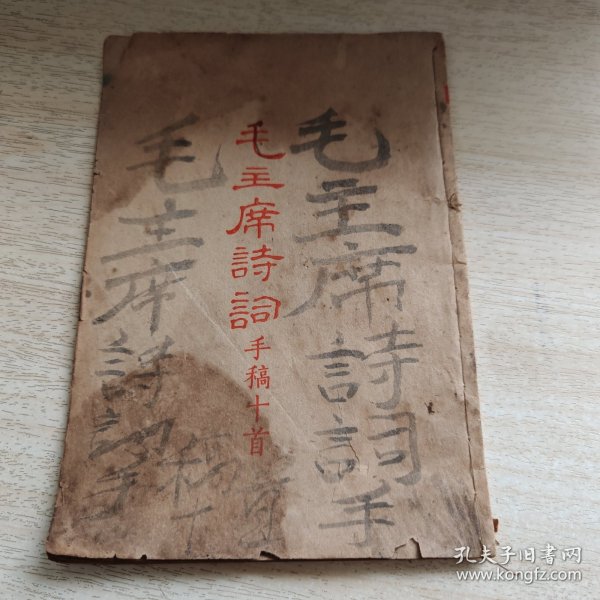 毛主席詩詞手
毛主席詩詞手稿十首
毛主席詩詞手
稿十首
孔夫子旧书网
www.kongfz.com